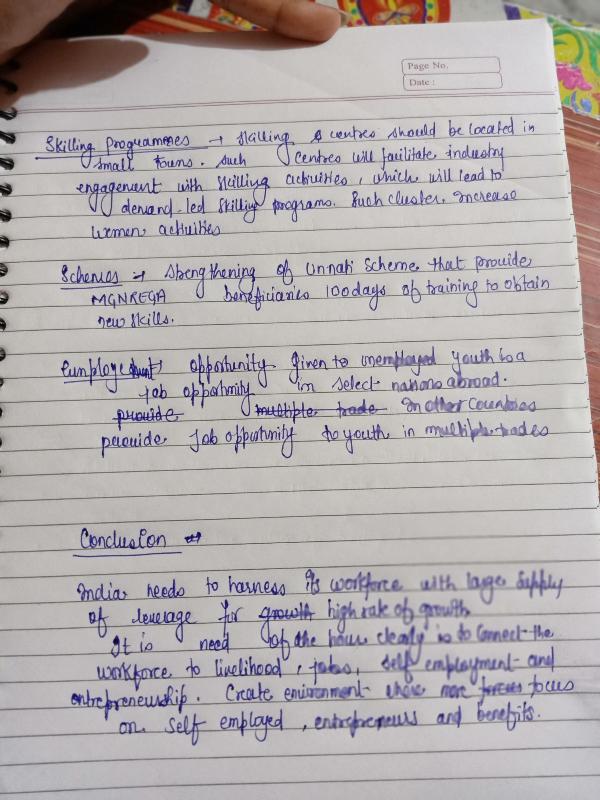 Page No.
Date :
Skilling Programmes → skilling centres should be located in
small towns. such centres will facilitate industry
engagement with skilling activities, which will lead to
demand-led skilling programs. Such cluster. Increase
women activities
Schemes → strengthening of Unnati Scheme that provide
MGNREGA beneficiaries 100 days of training to obtain
new skills.
opportunity given to unemployed youth is a
Job opportunity in select nations abroad.
provide multiple trade In other Countries
provide Job opportunity to youth in multiple trades
Conclusion →
India needs to harness its workforce with large Supply
of leverage for growth high rate of growth
It is need of the hour clearly is to connect the
workforce to livelihood, jobs, self employment and
entrepreneurship. Create environment more focus
on self employed, entrepreneurs and benefits.